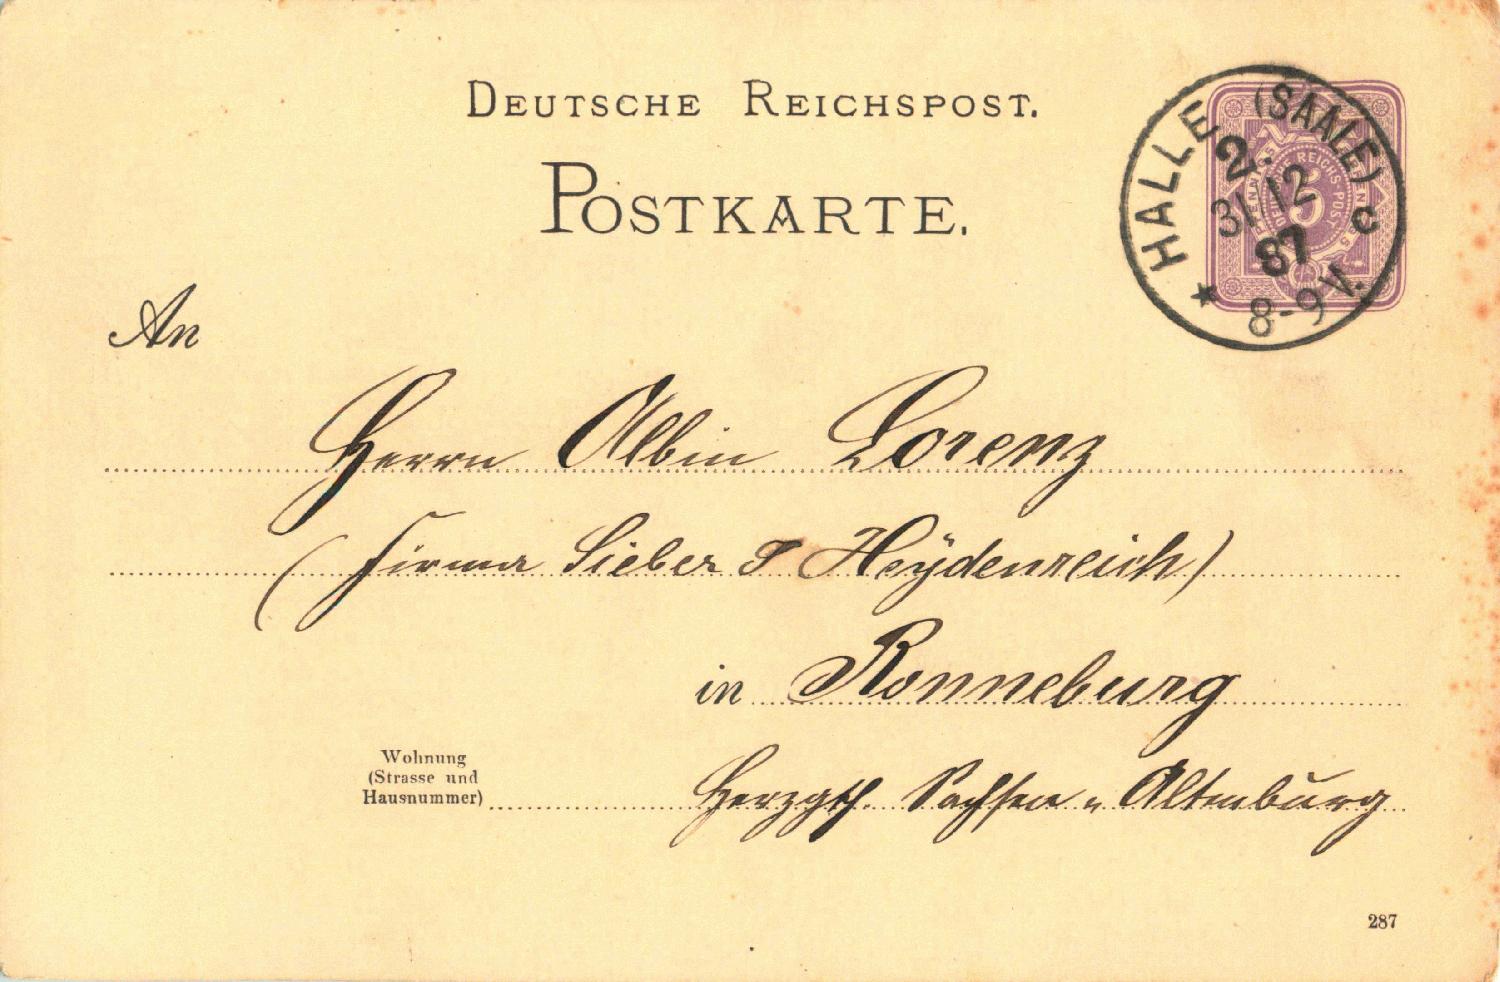 DEUTSCHE REICHSPOST.
POSTKARTE.
HALLE (SAALE)
2.
31 12
87
8-9 V.
c
REICHS-POST
5
An
Herrn Albin Lorenz
(Firma Sieber & Heÿdenreich)
in Ronneburg
Wohnung
(Strasse und
Hausnummer)
Herzgth. Sachsen-Altenburg
287